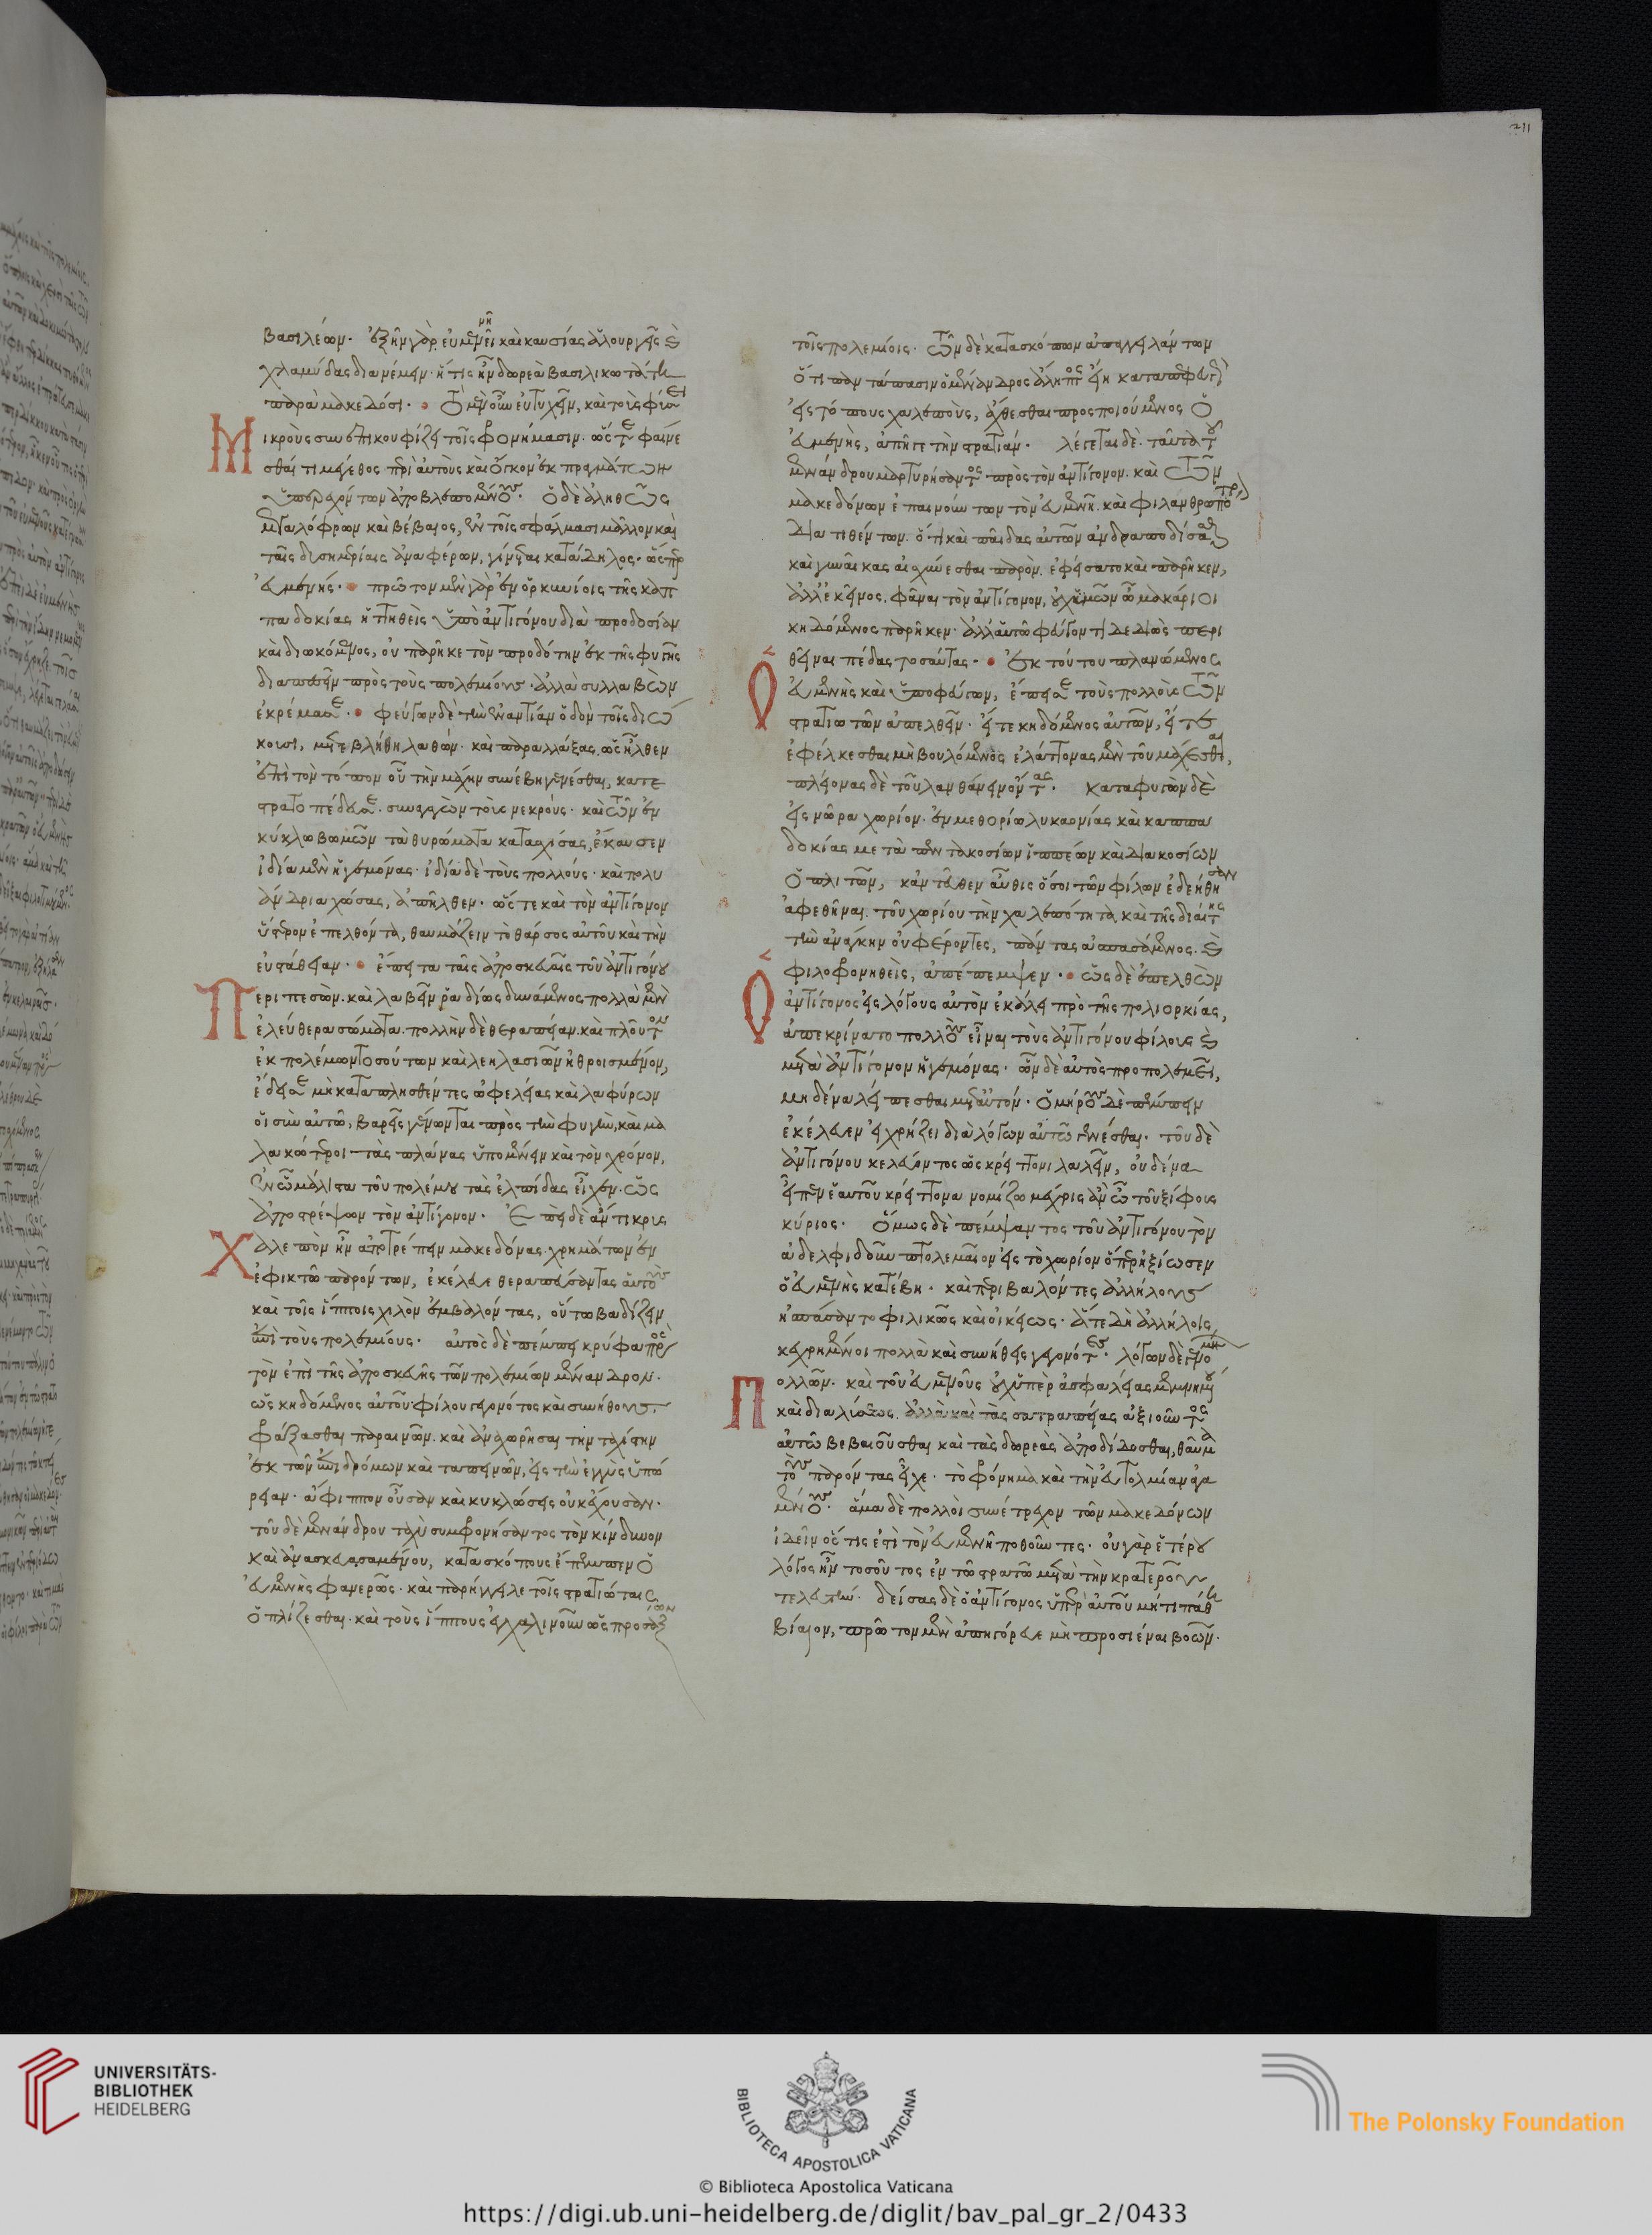 βασιλέων. ἐξῆν γὰρ εὐμενεῖ καὶ καυσίας ἁλουργεῖς καὶ
χλαμύδας διανέμειν. ἥτις ἦν δωρεὰ βασιλικωτάτη
παρὰ μακεδόσι. Τὸ μὲν οὖν εὐτυχεῖν, καὶ τοὺς φύσει
Μικροὺς συνεπικουφίζει τοῖς φρονήμασιν. ὥστε φαίνε
σθαί τι μέγεθος περὶ αὐτοὺς καὶ ὄγκον ἐκ πραγμάτων
ὑπερεχόντων ἀποβλεπομένους. Ὁ δὲ ἀληθῶς
μεγαλόφρων καὶ βέβαιος, ἐν τοῖς σφάλμασι μᾶλλον καὶ
ταῖς δυσημερίαις ἀναφέρων, γίνεται κατάδηλος. ὥσπερ
εὐμένης. πρῶτον μὲν γὰρ ἐν ὀρκυνίοις τῆς καπ
παδοκίας ἡττηθεὶς ὑπὸ ἀντιγόνου διὰ προδοσίαν
καὶ διωκόμενος, οὐ παρῆκε τὸν προδότην ἐκ τῆς φυγῆς
διαπεσεῖν πρὸς τοὺς πολεμίους. ἀλλὰ συλλαβὼν
ἐκρέμασε. φεύγων δὲ τὴν ἐναντίαν ὁδὸν τοῖς διώ
κουσι, μετεβλήθη λαθών. καὶ παραλλάξας, ὡς ἦλθεν
ἐπὶ τὸν τόπον οὗ τὴν μάχην συνέβη γενέσθαι, κατε
στρατοπέδευσε. συναγαγὼν τοὺς νεκρούς. καὶ τῶν ἐν
κύκλω κωμῶν τὰ θυρώματα κατασχίσας, ἔκαυσεν
ἰδία μὲν ἡγεμόνας. ἰδία δὲ τοὺς πολλούς. καὶ πολυ
άνδρια χώσας, ἀπῆλθεν. ὥστε καὶ τὸν ἀντίγονον
ὕστερον ἐπελθόντα, θαυμάζειν τὸ θάρσος αὐτοῦ καὶ τὴν
εὐστάθειαν. ἔπειτα ταῖς ἀποσκευαῖς τοῦ ἀντιγόνου
Περιπεσών. καὶ λαβεῖν ῥαδίως δυνάμενος πολλὰ μὲν
ἐλεύθερα σώματα. πολλὴν δὲ θεραπείαν. καὶ πλοῦτον
ἐκ πολέμων τοσούτων καὶ λεηλασιῶν ἠθροισμένον,
ἔδεισε μὴ καταπλησθέντες ὠφελείας καὶ λαφύρων
οἱ σὺν αὐτῶ, βαρεῖς γένωνται πρὸς τὴν φυγὴν, καὶ μα
λακώτεροι τὰς πλάνας ὑπομένειν καὶ τὸν χρόνον,
ἐν ὧ μάλιστα τοῦ πολέμου τὰς ἐλπίδας εἶχεν. ὡς
ἀποστρέψων τὸν ἀντίγονον. Ἐπεὶ δὲ ἄντικρυς
Χαλεπὸν ἦν ἀποτρέπειν μακεδόνας. χρημάτων ἐν
ἐφικτῶ παρόντων, ἐκέλευε θεραπεύσαντας αὑτοὺς
καὶ τοῖς ἵπποις χιλὸν ἐμβαλόντας, οὕτω βαδίζειν
ἐπὶ τοὺς πολεμίους. αὐτὸς δὲ πέμπει κρύφα πρὸς
τὸν ἐπὶ τῆς ἀποσκευῆς τῶν πολεμίων μένανδρον.
ὡς κηδόμενος αὐτοῦ φίλου γεγονότος καὶ συνήθους.
φράξασθαι παραινῶν. καὶ ἀναχωρῆσαι τὴν ταχίστην
ἐκ τῶν ἐπιδρόμων καὶ ταπεινῶν, εἰς τὴν ἐγγὺς ὑπώ
ρειαν. ἄφιππον οὖσαν καὶ κυκλώσεις οὐκ ἔχουσαν.
τοῦ δὲ μενάνδρου ταχὺ συμφρονήσαντος τὸν κίνδυνον
καὶ ἀνασκευασαμένου, κατασκόπους ἔπεμπεν ὁ
εὐμένης φανερῶς. καὶ παρήγγειλε τοῖς στρατιώταις
ὁπλίζεσθαι. καὶ τοὺς ἵππους ἐγχαλινοῦν ὡς προσάξων
τοῖς πολεμίοις. Τῶν δὲ κατασκόπων ἀπαγγειλάντων
ὅτι παντάπασιν ὁ μένανδρος ἄληπτος εἴη καταπεφευγὼς
εἰς τόπους χαλεποὺς, ἄχθεσθαι προσποιούμενος ὁ
εὐμένης, ἀπῆγε τὴν στρατιάν. λέγεται δὲ. ταῦτα τοῦ
μενάνδρου μαρτυρήσαντος πρὸς τὸν ἀντίγονον. καὶ τῶν
μακεδόνων ἐπαινούντων τὸν εὐμένη. καὶ φιλανθρωπότερον
διατιθέντων. ὅτι καὶ παῖδας αὐτῶν ἀνδραποδίσασθαι
καὶ γυναῖκας αἰσχύνεσθαι παρὸν. ἐφείσατο καὶ παρῆκεν,
ἀλλ' ἐκεῖνος, φάναι τὸν ἀντίγονον, οὐχ ἡμῶν ὦ μακάριοι
κηδόμενος παρῆκεν. ἀλλ' αὑτῶ φεύγοντι δεδιὼς περι
θεῖναι πέδας τοσαύτας. ἐκ τούτου πλανώμενος
Ὁ εὐμένης καὶ ὑποφεύγων, ἔπεισε τοὺς πολλοὺς τῶν
στρατιωτῶν ἀπελθεῖν. εἴτε κηδόμενος αὐτῶν, εἴτε
ἐφέλκεσθαι μὴ βουλόμενος ἐλάττονας μὲν τοῦ μάχεσθαι,
πλείονας δὲ τοῦ λανθάνειν ὄντας. Καταφυγὼν δὲ
εἰς νῶρα χωρίον. ἐν μεθορίω λυκαονίας καὶ καππα
δοκίας μετὰ πεντακοσίων ἱππέων καὶ διακοσίων
ὁπλιτῶν, κἀνταῦθεν αὖθις ὅσοι τῶν φίλων ἐδεήθησαν
ἀφεθῆναι. τοῦ χωρίου τὴν χαλεπότητα, καὶ τῆς διαίτης
τὴν ἀνάγκην οὐ φέροντες, πάντας ἀσπασάμενος. καὶ
φιλοφρονηθεὶς, ἀπέπεμψεν. ὡς δὲ ἐπελθὼν
Ὁ ἀντίγονος εἰς λόγους αὐτὸν ἐκάλει πρὸ τῆς πολιορκίας,
ἀπεκρίνατο πολλοὺς εἶναι τοὺς ἀντιγόνου φίλους καὶ
μετὰ ἀντίγονον ἡγεμόνας. ὧν δὲ αὐτὸς προπολεμεῖ,
μηδένα λείπεσθαι μετ' αὐτόν. Ὁμήρους δὲ πέμπειν
ἐκέλευεν εἰ χρήζει διὰ λόγων αὐτῶ γενέσθαι. τοῦ δὲ
ἀντιγόνου κελεύοντος ὡς κρείττονι λαλεῖν, οὐδένα
εἶπεν ἑαυτοῦ κρείττονα νομίζω μέχρις ἂν ὦ τοῦ ξίφους
κύριος. Ὅμως δὲ πέμψαντος τοῦ ἀντιγόνου τὸν
ἀδελφιδοῦν πτολεμαῖον εἰς τὸ χωρίον ὥσπερ ἠξίωσεν
ὁ εὐμένης κατέβη. καὶ περιβαλόντες ἀλλήλους
ἠσπάσαντο φιλικῶς καὶ οἰκείως. ἅτε δὴ ἀλλήλοις
κεχρημένοι πολλὰ καὶ συνήθεις γεγονότες. λόγων δὲ γενομένων
Πολλῶν. καὶ τοῦ εὐμένους οὐχ ὑπὲρ ἀσφαλείας μεμνημένου
καὶ διαλύσεως. ἀλλὰ καὶ τὰς σατραπείας ἀξιοῦντος
αὐτῶ βεβαιοῦσθαι καὶ τὰς δωρεὰς ἀποδίδοσθαι, θαῦμα
τοὺς παρόντας εἶχε. τὸ φρόνημα καὶ τὴν εὐτολμίαν ἀγα
μένους. ἅμα δὲ πολλοὶ συνέτρεχον τῶν μακεδόνων
ἰδεῖν ὅστις ἐστὶ τὸν εὐμένη ποθοῦντες. οὐ γὰρ ἑτέρου
λόγος ἦν τοσοῦτος ἐν τῶ στρατῶ μετὰ τὴν κρατεροῦ
τελευτήν. δείσας δὲ ὁ ἀντίγονος ὑπὲρ αὐτοῦ μή τι πάθη
βίαιον, πρῶτον μὲν ἀπηγόρευε μὴ προσιέναι βοῶν.
211
UNIVERSITÄTS-
BIBLIOTHEK
HEIDELBERG
BIBLIOTECA APOSTOLICA VATICANA
The Polonsky Foundation
© Biblioteca Apostolica Vaticana
https://digi.ub.uni-heidelberg.de/diglit/bav_pal_gr_2/0433